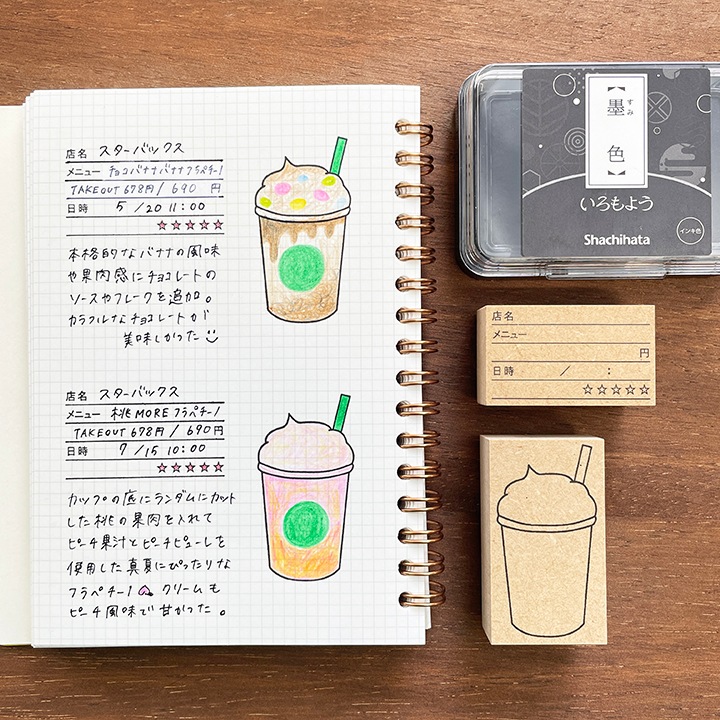 店名 スターバックス
メニュー チョコバナナバナナフラペチーノ
TAKEOUT 678円 / 690 円
日時 5 / 20 11:00
☆☆☆☆☆
本格的なバナナの風味
や果肉感にチョコレートの
ソースやフレークを追加。
カラフルなチョコレートが
美味しかった
店名 スターバックス
メニュー 桃MOREフラペチーノ
TAKEOUT 678円 / 690円
日時 7 / 15 10:00
☆☆☆☆☆
カップの底にランダムにカット
した桃の果肉を入れて
ピーチ果汁とピーチピューレを
使用した真夏にぴったりな
フラペチーノ クリームも
ピーチ風味で甘かった。
【墨色】
すみ
いろもよう
Shachihata
インキ色
店名
メニュー
円
日時 / :
☆☆☆☆☆